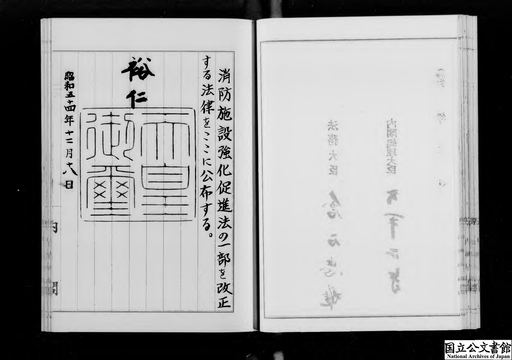 消防施設強化促進法の一部を改正
する法律をここに公布する。
裕仁
天皇
御璽
昭和五十四年十二月十八日
内閣
内閣総理大臣
法務大臣
国立公文書館
National Archives of Japan